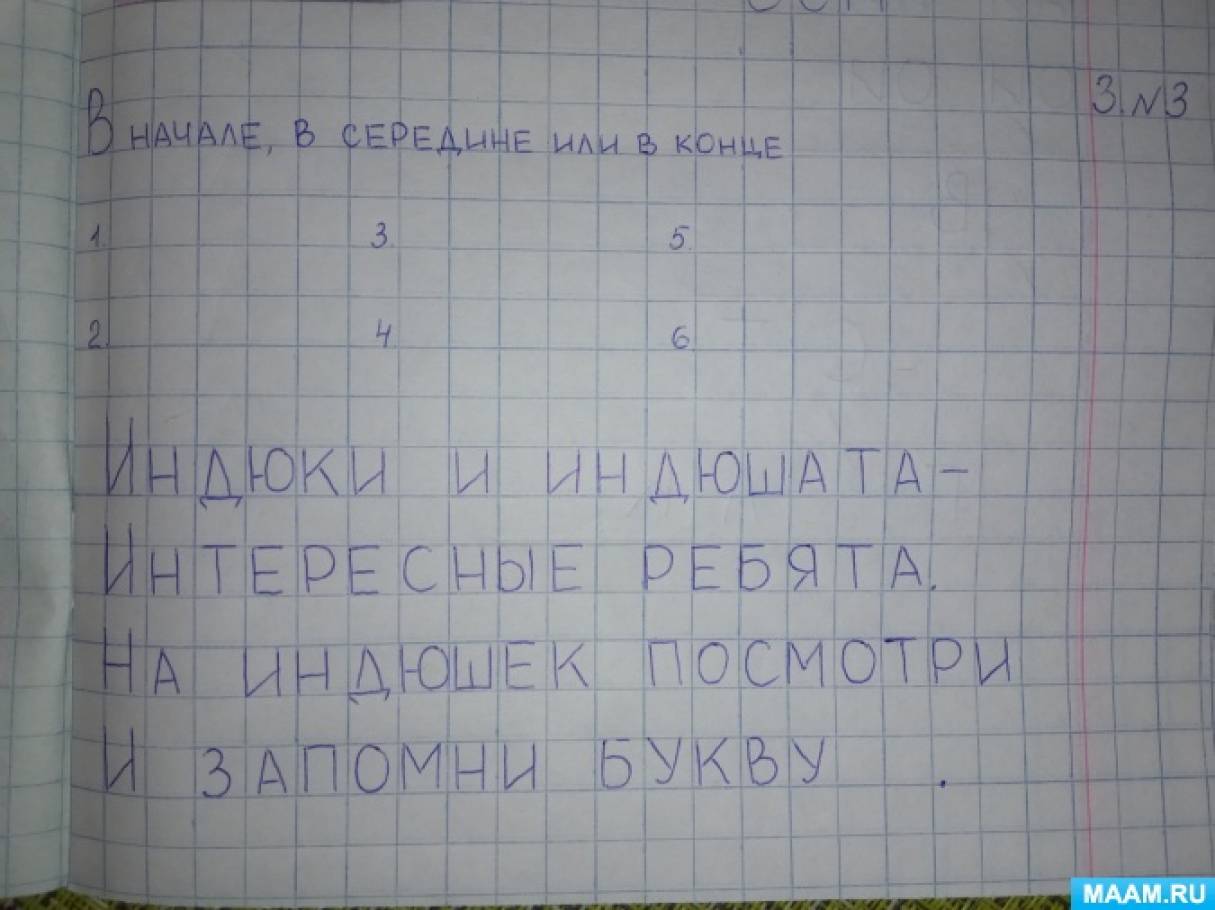 3.№3
В начале, в середине или в конце
1. 3. 5.
2. 4. 6.
Индюки и индюшата –
Интересные ребята.
На индюшек посмотри
И запомни букву .
MAAM.RU